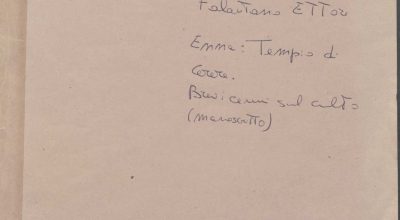 Falautano ETTORE
Enna: Tempio di
Cerere.
Brevi cenni sul culto
(manoscritto)